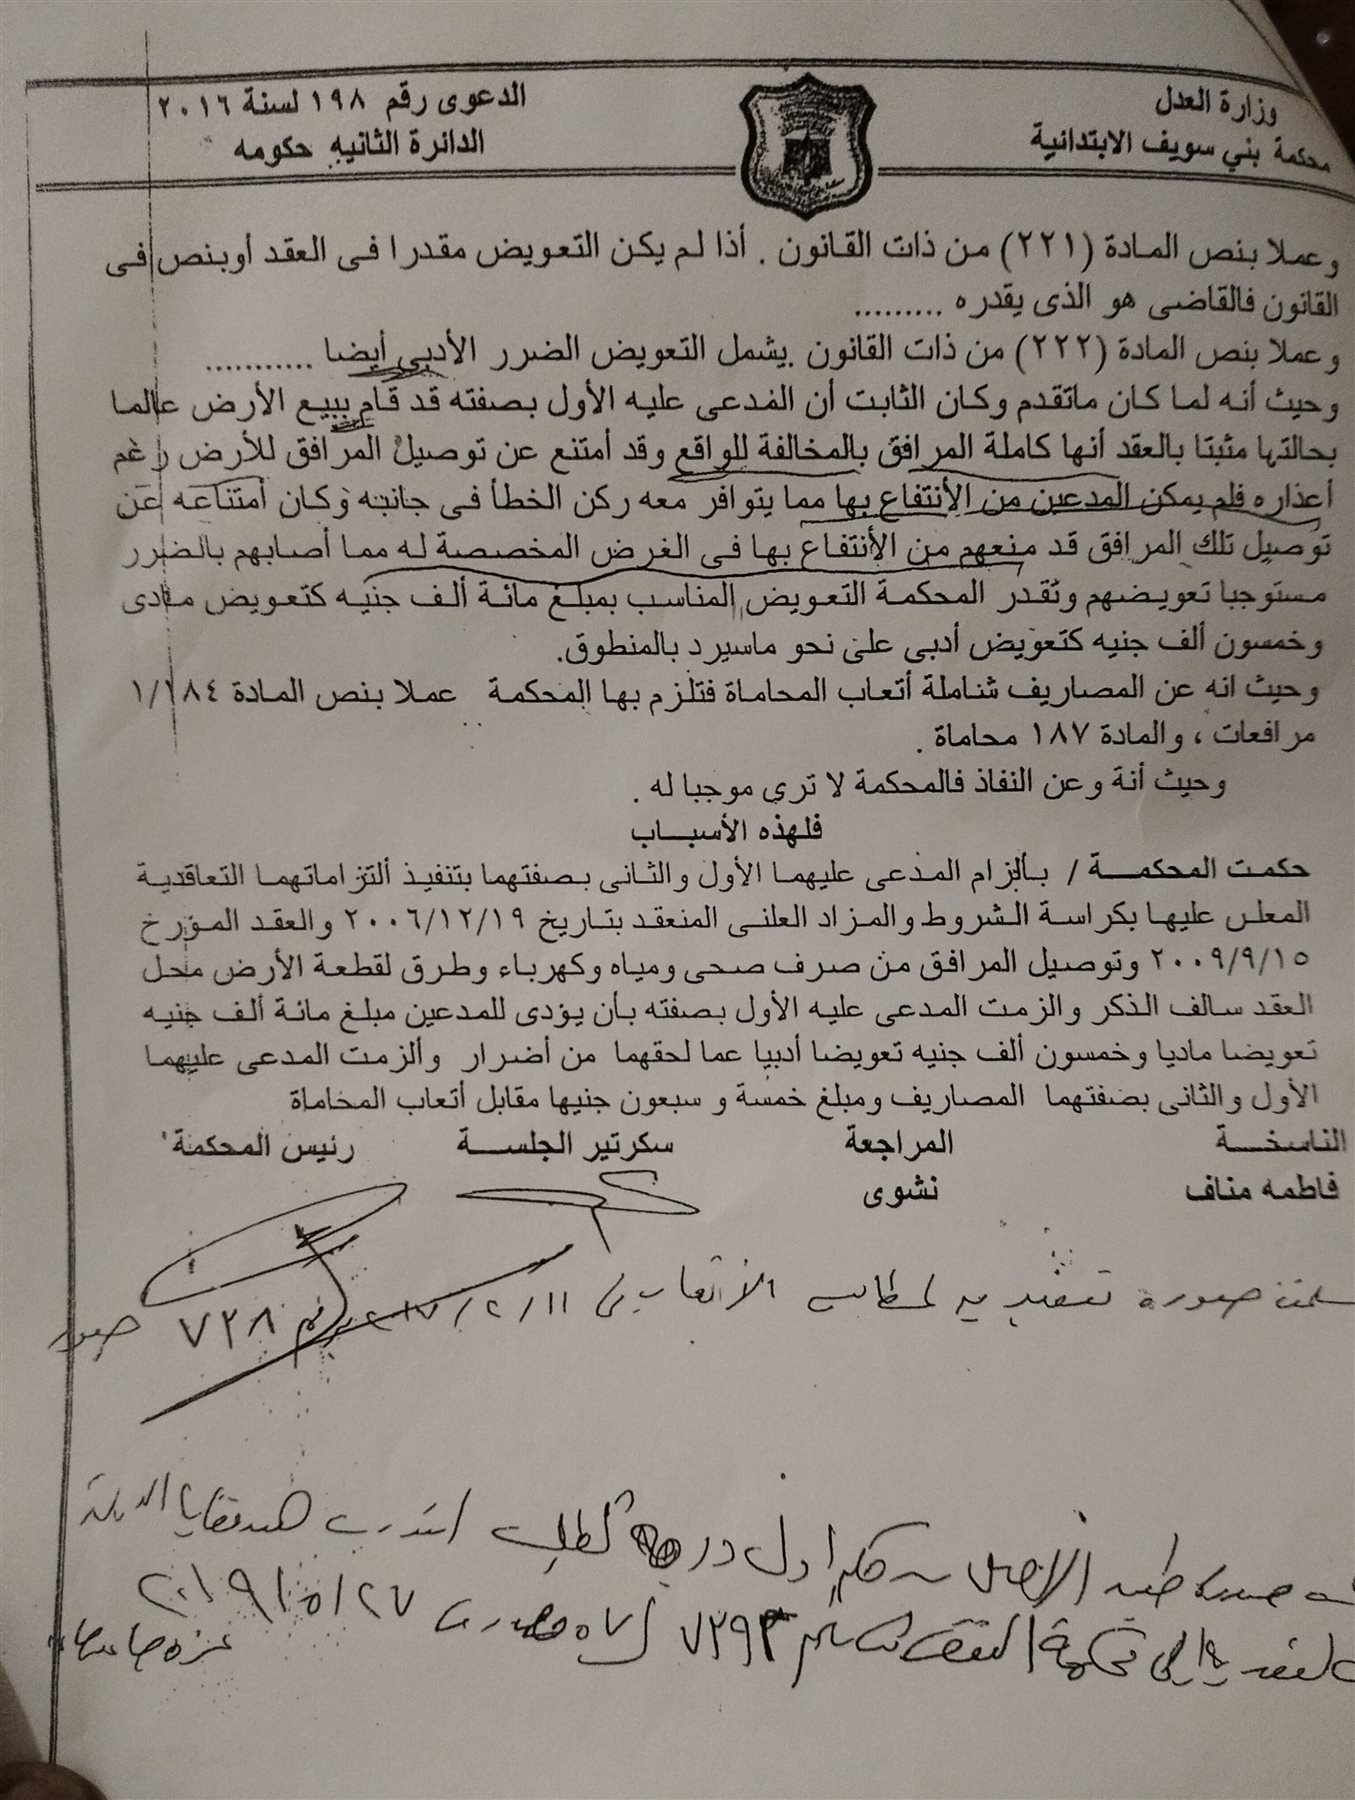 وزارة العدل
محكمة بني سويف الابتدائية
الدعوى رقم ١٩٨ لسنة ٢٠١٦
الدائرة الثانيه حكومه
وعملا بنص المادة (٢٢١) من ذات القانون . أذا لم يكن التعويض مقدرا فى العقد أوبنص فى
القانون فالقاضى هو الذى يقدره .........
وعملا بنص المادة (٢٢٢) من ذات القانون يشمل التعويض الضرر الأدبى أيضا ...........
وحيث أنه لما كان ماتقدم وكان الثابت أن المدعى عليه الأول بصفته قد قام ببيع الأرض عالما
بحالتها مثبتا بالعقد أنها كاملة المرافق بالمخالفة للواقع وقد أمتنع عن توصيل المرافق للأرض رغم
أعذاره فلم يمكن المدعين من الأنتفاع بها مما يتوافر معه ركن الخطأ فى جانبه وكان أمتناعه عن
توصيل تلك المرافق قد منعهم من الأنتفاع بها فى الغرض المخصصة له مما أصابهم بالضرر
مستوجبا تعويضهم وتقدر المحكمة التعويض المناسب بمبلغ مائة ألف جنيه كتعويض مادى
وخمسون ألف جنيه كتعويض أدبى على نحو ماسيرد بالمنطوق.
وحيث انه عن المصاريف شاملة أتعاب المحاماة فتلزم بها المحكمة عملا بنص المادة ١/١٨٤
مرافعات ، والمادة ١٨٧ محاماة .
وحيث أنة وعن النفاذ فالمحكمة لا تري موجبا له .
فلهذه الأسبـــاب
حكمت المحكمـــة / بألزام المدعى عليهما الأول والثانى بصفتهما بتنفيذ ألتزاماتهما التعاقدية
المعلن عليها بكراسة الشروط والمزاد العلنى المنعقد بتاريخ ٢٠٠٦/١٢/١٩ والعقد المؤرخ
٢٠٠٩/٩/١٥ وتوصيل المرافق من صرف صحى ومياه وكهرباء وطرق لقطعة الأرض محل
العقد سالف الذكر والزمت المدعى عليه الأول بصفته بأن يؤدى للمدعين مبلغ مائة ألف جنيه
تعويضا ماديا وخمسون ألف جنيه تعويضا أدبيا عما لحقهما من أضرار وألزمت المدعى عليهما
الأول والثانى بصفتهما المصاريف ومبلغ خمسة و سبعون جنيها مقابل أتعاب المحاماة
الناسخـــة المراجعة سكرتير الجلســـة رئيس المحكمة
فاطمه مناف نشوى
صورة تنفيذيه الاتعاب فى ٢٠١٧/٢/١١ رقم ٧٣٨ صور
طبق الاصل من حكم اول درجة قضايا الدولة
محكمة النقض ٧٢٩٣ ٢٠١٩/٥/٢٧